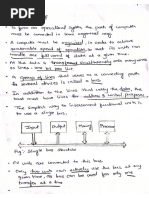 To given an operational system the parts of computer
must be connected in some organised way.
A computer must be organised in order to achieve
reasonable speed of operation so that its units can
handle one full word of data at a given time.
All the bits is transferred simultaneously into many wires
one bit per line
A Group of lines that serves as a connecting path
for several devices is called a bus.
In addition to the lines that carry the data, the
bus must have lines for address & control purpose.
The simplest way to interconnect functional units is
to use a single bus.
Input
Output
Memory
Processor
Fig: Single bus structure
All units are connected to this bus.
Only two units can actively use the bus at any
given time the bus can be used for only one
transfer at a time